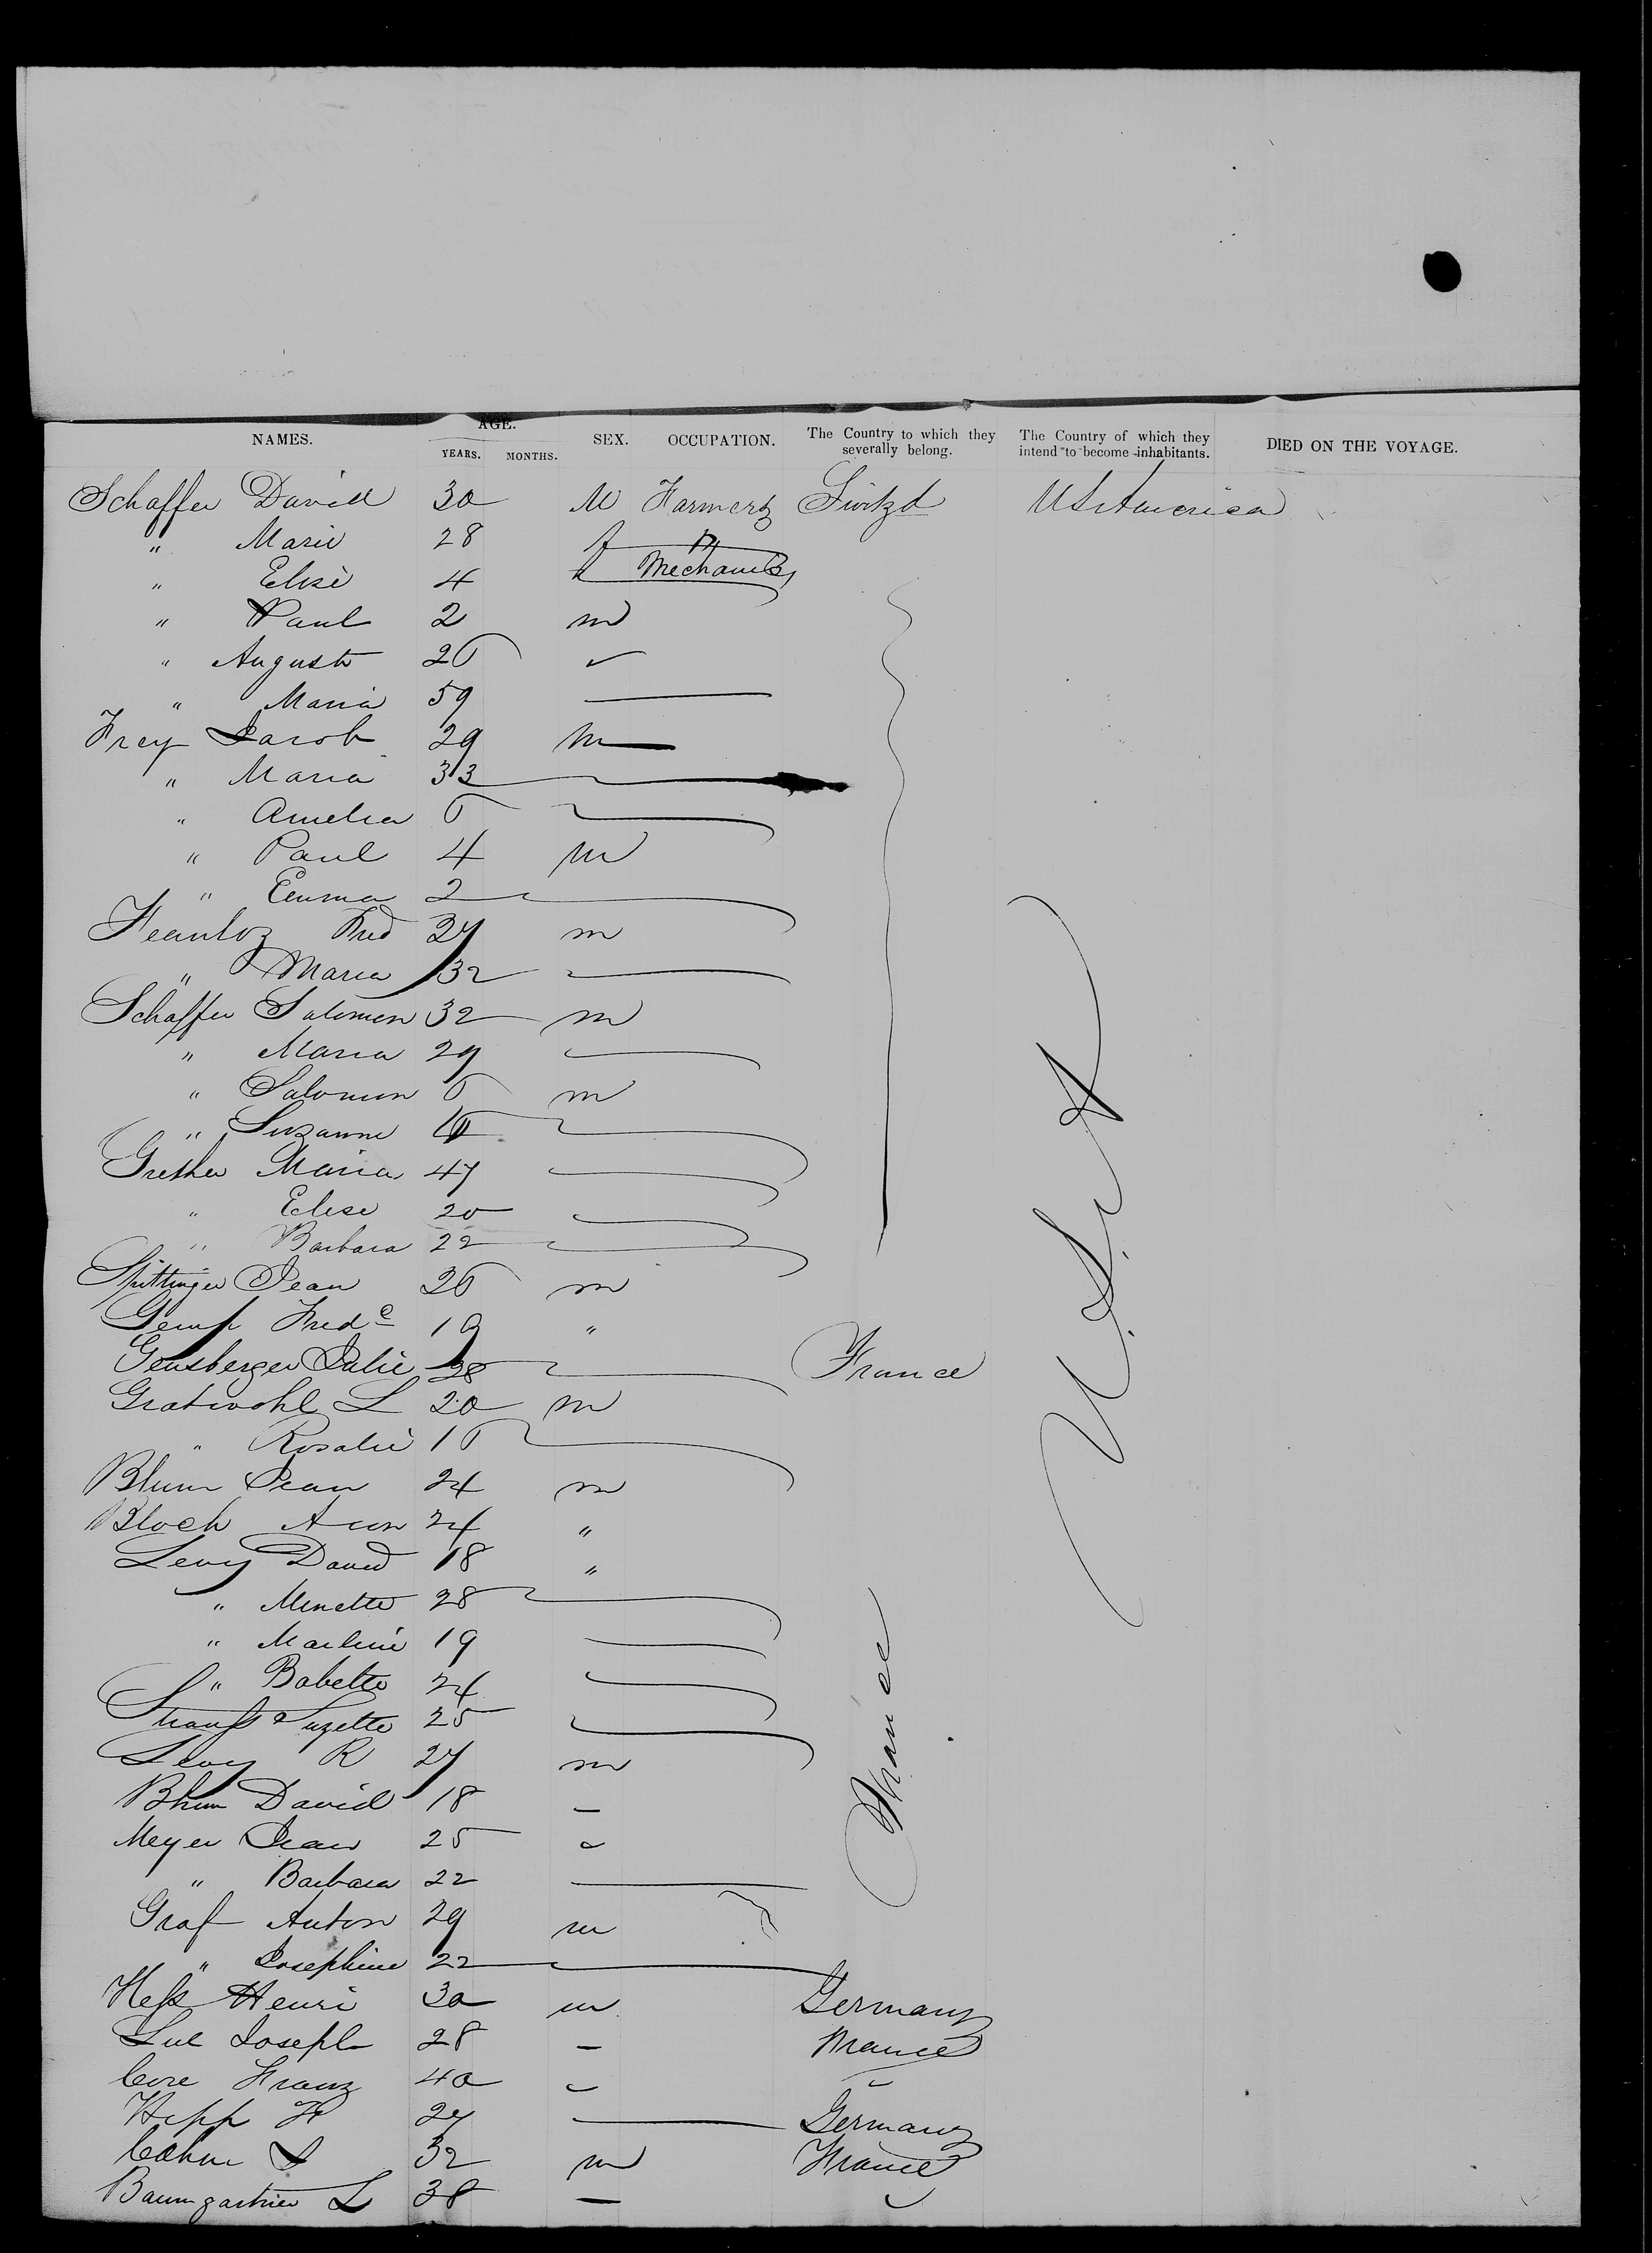 NAMES. AGE. YEARS. MONTHS. SEX. OCCUPATION. The Country to which they severally belong. The Country of which they intend to become inhabitants. DIED ON THE VOYAGE.
Schaffer David 30 M Farmers Switzd U S America
" Marie 28 f
" Elise 4 Mechanics
" Paul 2 m
" August 26
" Maria 59
Frey Jacob 29 m
" Maria 33
" Amelia 6
" Paul 4 m
" Emma 2
Jeanloz Fred 27 m
" Maria 32
Schaffer Salomon 32 m
" Maria 29
" Salomon 6 m
" Suzanne
Grether Maria 47
" Elise 20
" Barbara 22
Spittinger Jean 26 m
Gemp Fredc 19 "
Gensberger Julie 28 France
Gratwohl L 20 m
" Rosalie 16
Blum Jean 24 m
Bloch Aron 24 "
Levy David 18 "
" Minette 28
" Marline 19
" Babette 24
Strauss Suzette 25
Levy R 27 m
Blum David 18
Meyer Jean 25
" Barbara 22
Graf Anton 29 m
" Josephine 22
Hess Henri 30 m Germany
Joseph 28 France
Franz 40
Hepp F 27 Germany
Cahn S 32 m France
Baumgartner L 38
France
U.S.A